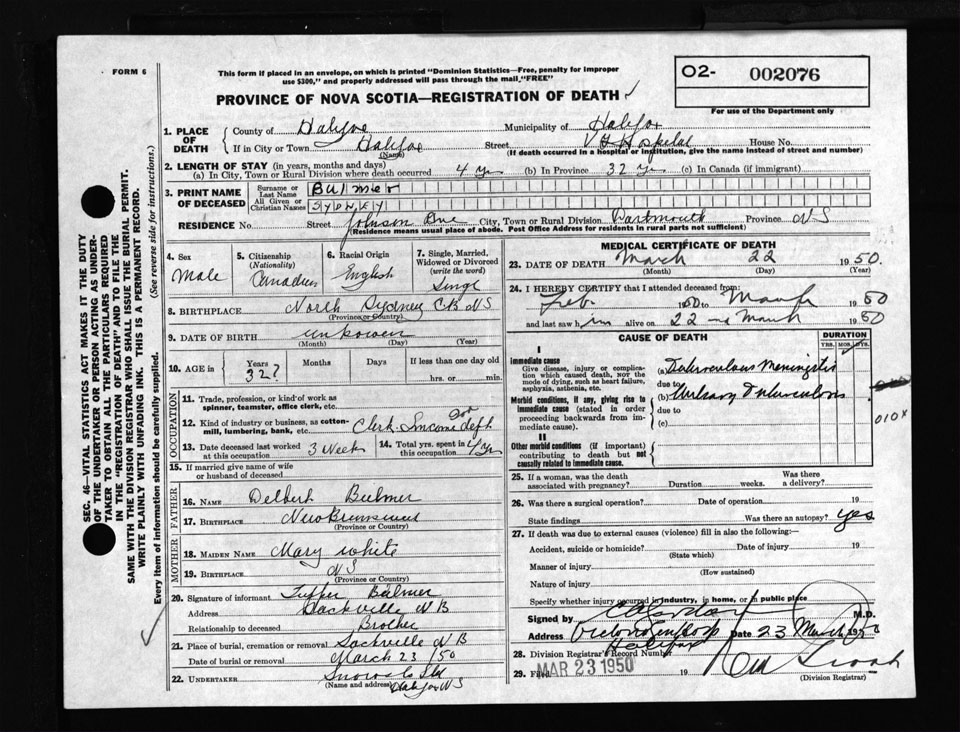 FORM 6
This form if placed in an envelope, on which is printed "Dominion Statistics—Free, penalty for improper
use $300," and properly addressed will pass through the mail, "FREE"
O2- 002076
For use of the Department only
PROVINCE OF NOVA SCOTIA—REGISTRATION OF DEATH
1. PLACE OF DEATH
County of Halifax Municipality of Halifax
If in City or Town Halifax Street V G Hospital House No.
(Name) (If death occurred in a hospital or institution, give the name instead of street and number)
2. LENGTH OF STAY (in years, months and days)
(a) In City, Town or Rural Division where death occurred 4 yrs (b) In Province 32 yrs (c) In Canada (if immigrant)
3. PRINT NAME OF DECEASED
Surname or Last Name Bulmer
All Given or Christian Names SYDNEY
RESIDENCE No. Street Johnson Ave City, Town or Rural Division Dartmouth Province NS
(Residence means usual place of abode. Post Office Address for residents in rural parts not sufficient)
4. Sex Male
5. Citizenship (Nationality) Canadian
6. Racial Origin English
7. Single, Married, Widowed or Divorced (write the word) Singl
8. BIRTHPLACE North Sydney CB NS
(Province or Country)
9. DATE OF BIRTH unknown
(Month) (Day) (Year)
10. AGE in Years 32? Months Days If less than one day old
hrs. or min.
OCCUPATION
11. Trade, profession, or kind of work as
spinner, teamster, office clerk, etc.
12. Kind of industry or business, as cotton-
mill, lumbering, bank, etc. Clerk Income Dept
13. Date deceased last worked at this occupation 3 weeks
14. Total yrs. spent in this occupation 4 yrs
15. If married give name of wife
or husband of deceased
FATHER
16. NAME Delbert Bulmer
17. BIRTHPLACE New Brunswick
(Province or Country)
MOTHER
18. MAIDEN NAME Mary White
19. BIRTHPLACE NS
(Province or Country)
20. Signature of informant Bulmer
Address Sackville NB
Relationship to deceased Brother
21. Place of burial, cremation or removal Sackville NB
Date of burial or removal March 23 '50
22. UNDERTAKER Snows
(Name and address) Halifax NS
MEDICAL CERTIFICATE OF DEATH
23. DATE OF DEATH March 22 1950.
(Month) (Day) (Year)
24. I HEREBY CERTIFY that I attended deceased from:
Feb. 1950 to March 1950
and last saw him alive on 22 nd March 1950
CAUSE OF DEATH
DURATION
YRS. MOS. DYS.
I
Immediate cause
Give disease, injury or complica-
tion which caused death, NOT the
mode of dying, such as heart failure,
asphyxia, asthenia, etc.
(a) Tuberculous Meningitis
due to
Morbid conditions, if any, giving rise to
immediate cause (stated in order
proceeding backwards from im-
mediate cause).
(b) Tuberculosis
due to
(c)
010X
II
Other morbid conditions (if important)
contributing to death but not
causally related to immediate cause.
25. If a woman, was the death
associated with pregnancy? Duration weeks. Was there a delivery?
26. Was there a surgical operation? Date of operation 19
State findings Was there an autopsy? yes
27. If death was due to external causes (violence) fill in also the following:—
Accident, suicide or homicide? Date of injury 19
(State which)
Manner of injury
(How sustained)
Nature of injury
Specify whether injury occurred in industry, in home, or in public place
Signed by M.D.
Address Halifax Date 23 March 1950
28. Division Registrar's Record Number
29. Filed MAR 23 1950 19
(Division Registrar)
SEC. 46—VITAL STATISTICS ACT MAKES IT THE DUTY
OF THE UNDERTAKER OR PERSON ACTING AS UNDER-
TAKER TO OBTAIN ALL THE PARTICULARS REQUIRED
IN THE "REGISTRATION OF DEATH" AND TO FILE THE
SAME WITH THE DIVISION REGISTRAR WHO SHALL ISSUE THE BURIAL PERMIT.
WRITE PLAINLY WITH UNFADING INK. THIS IS A PERMANENT RECORD.
Every item of information should be carefully supplied. (See reverse side for instructions.)